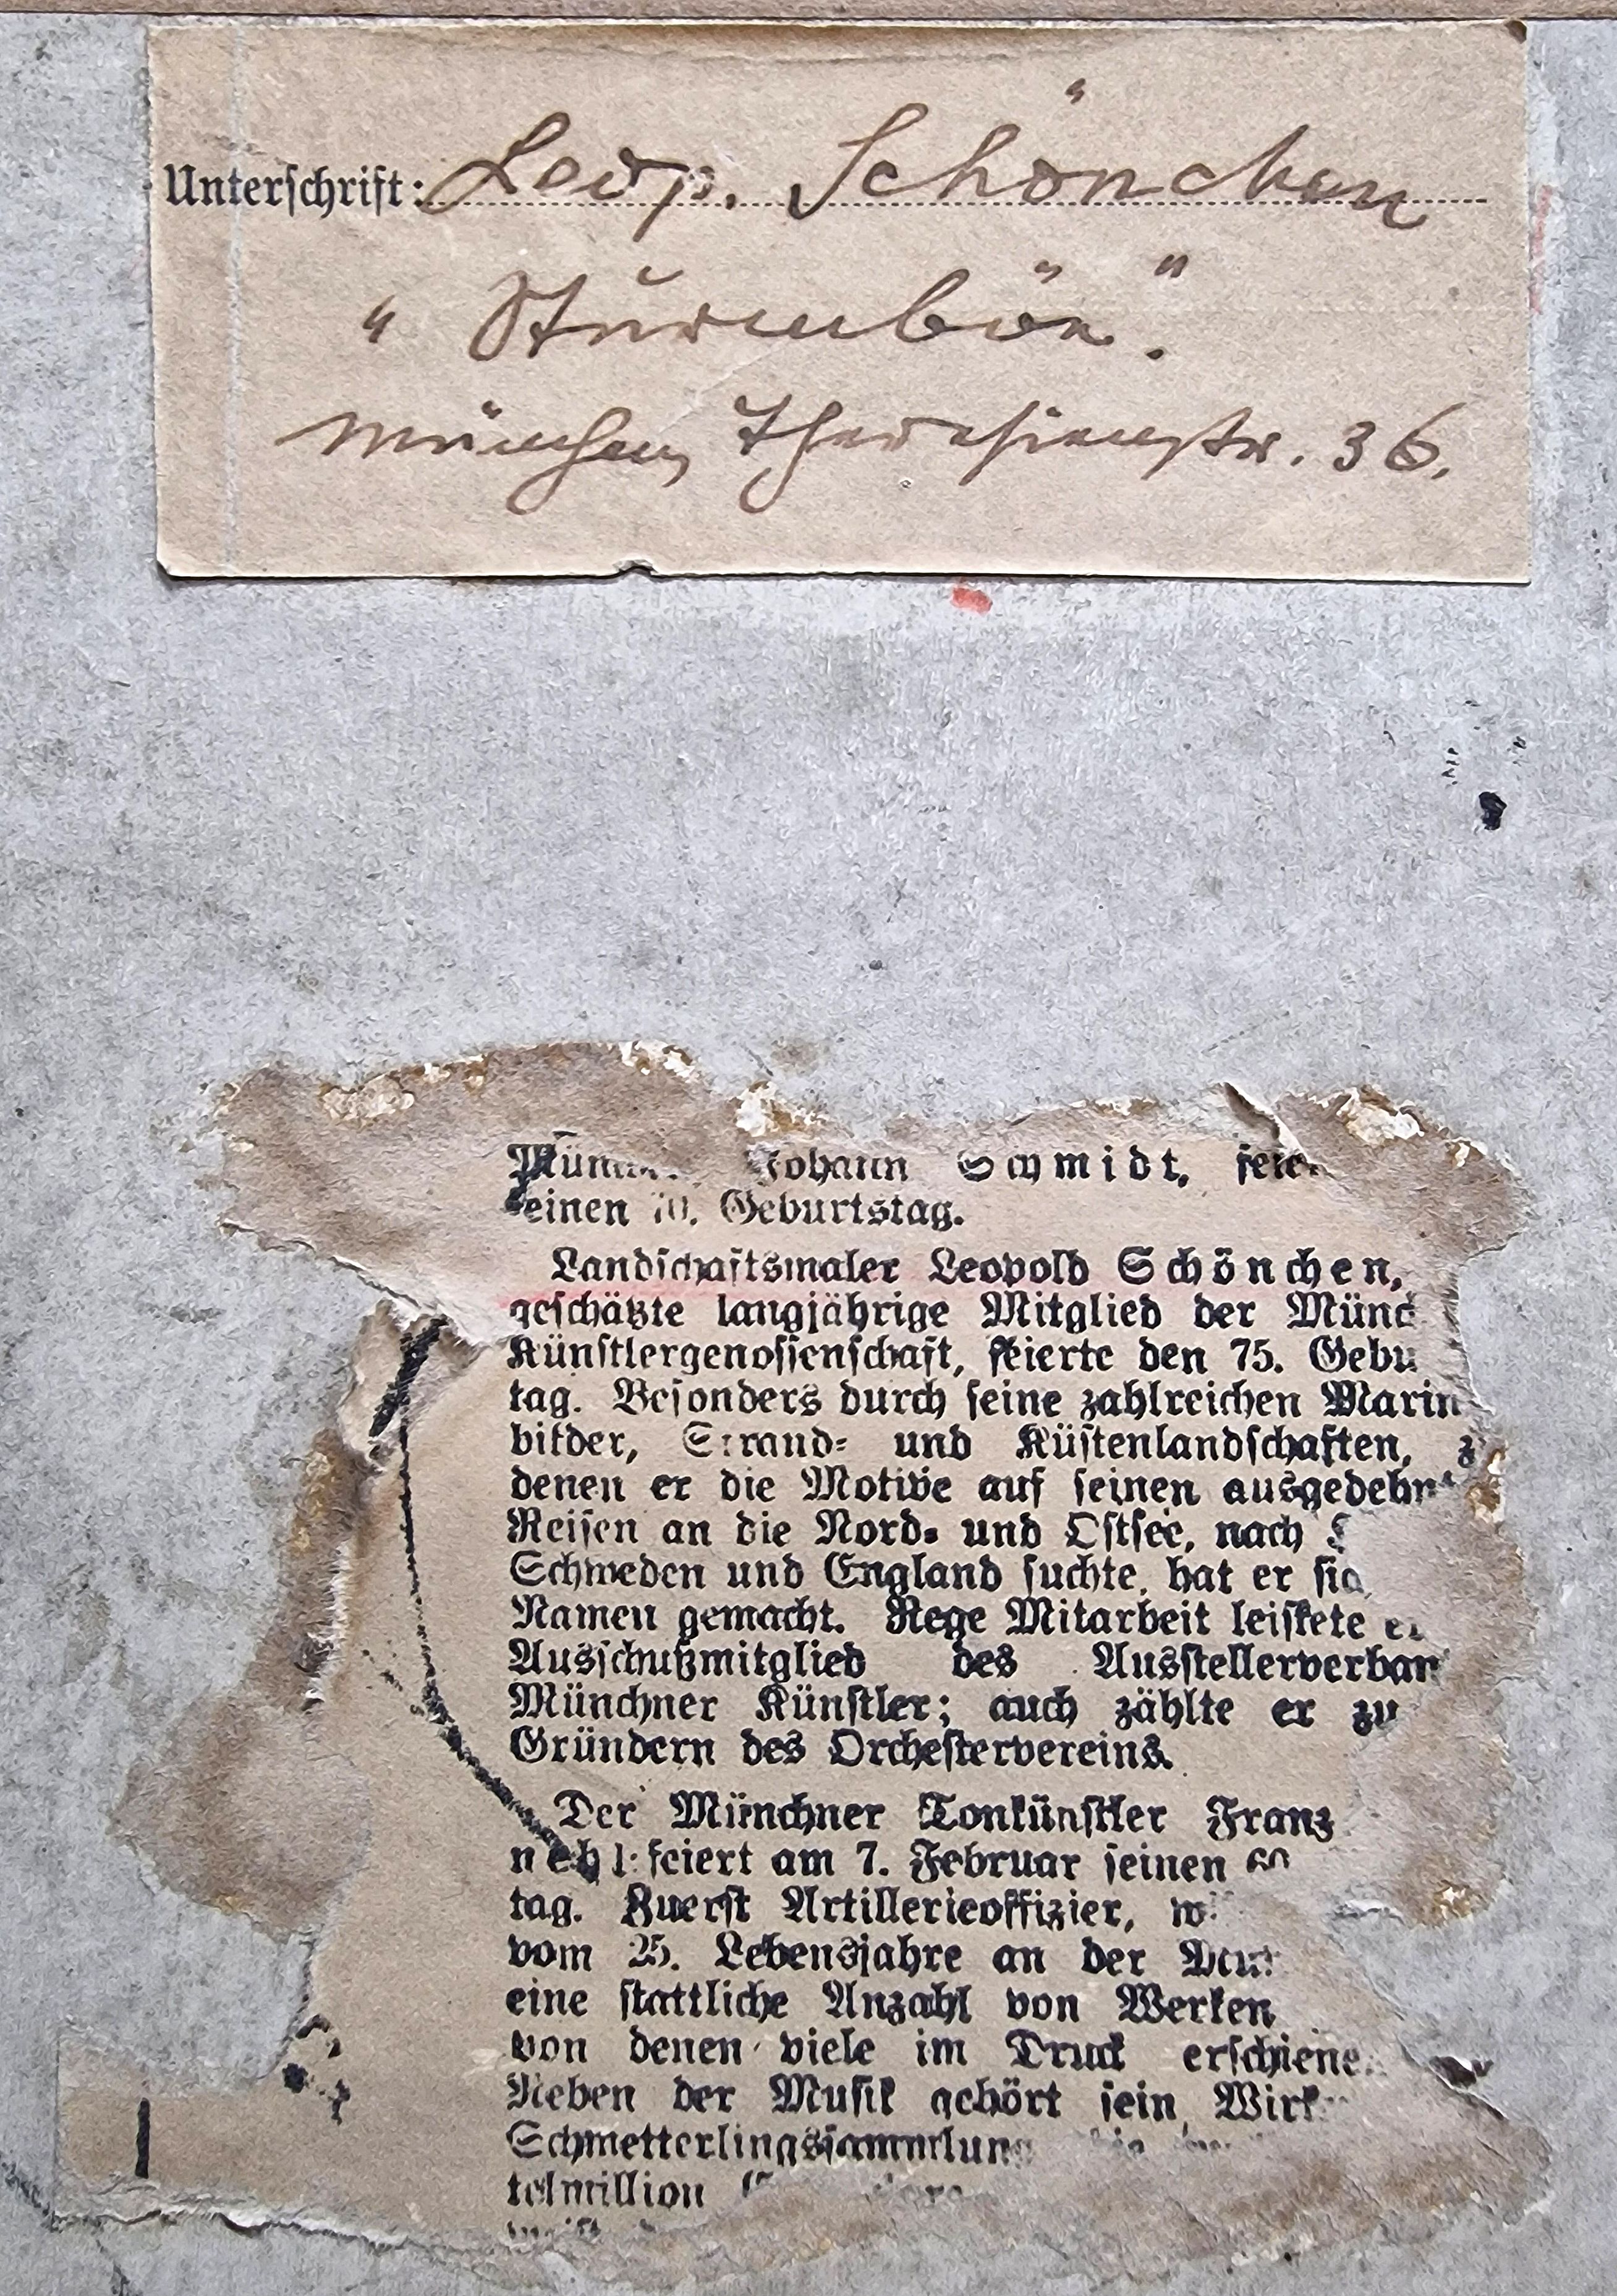 Unterschrift: Leop. Schönchen
„Sturmböe".
München, Theresienstr. 36.
Johann Schmidt,
seinen 70. Geburtstag.
Landschaftsmaler Leopold Schönchen,
geschätzte langjährige Mitglied der Münch
Künstlergenossenschaft, feierte den 75. Gebu
tag. Besonders durch seine zahlreichen Marin
bilder, Strand- und Küstenlandschaften, z
denen er die Motive auf seinen ausgedehnt
Reisen an die Nord- und Ostsee, nach
Schweden und England suchte, hat er sich
Namen gemacht. Rege Mitarbeit leistete er
Ausschußmitglied des Ausstellerverban
Münchner Künstler; auch zählte er zu
Gründern des Orchestervereins.
Der Münchner Tonkünstler Franz
nehl feiert am 7. Februar seinen 60
tag. Zuerst Artillerieoffizier, w
vom 25. Lebensjahre an der
eine stattliche Anzahl von Werken
von denen viele im Druck erschiene
Neben der Musik gehört sein Wirk
Schmetterlingssammlung
telmillion